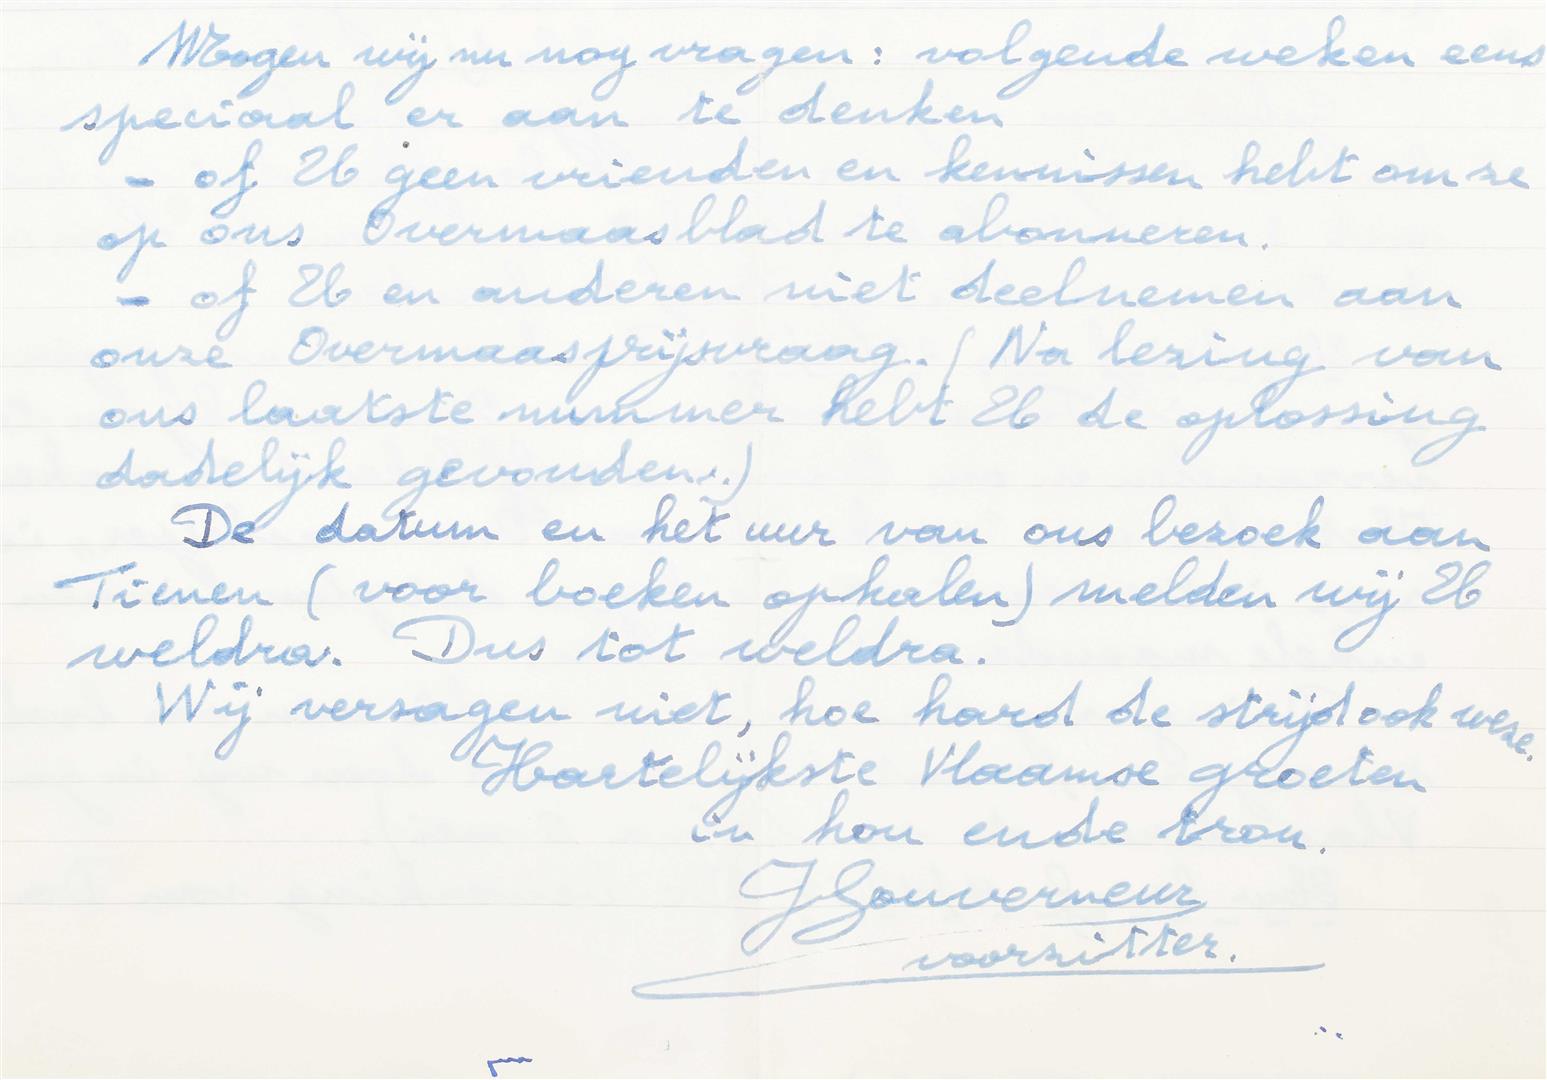 Mogen wij nu nog vragen: volgende weken eens
speciaal er aan te denken
- of U geen vrienden en kennissen hebt om ze
op ons Overmaasblad te abonneren.
- of U en anderen niet deelnemen aan
onze Overmaasprijsvraag. (Na lezing van
ons laatste nummer hebt U de oplossing
dadelijk gevonden.)
De datum en het uur van ons bezoek aan
Tienen (voor boeken ophalen) melden wij U
weldra. Dus tot weldra.
Wij versagen niet, hoe hard de strijd ook weze.
Hartelijkste Vlaamse groeten
in hou ende trou.
JGouverneur
voorzitter.